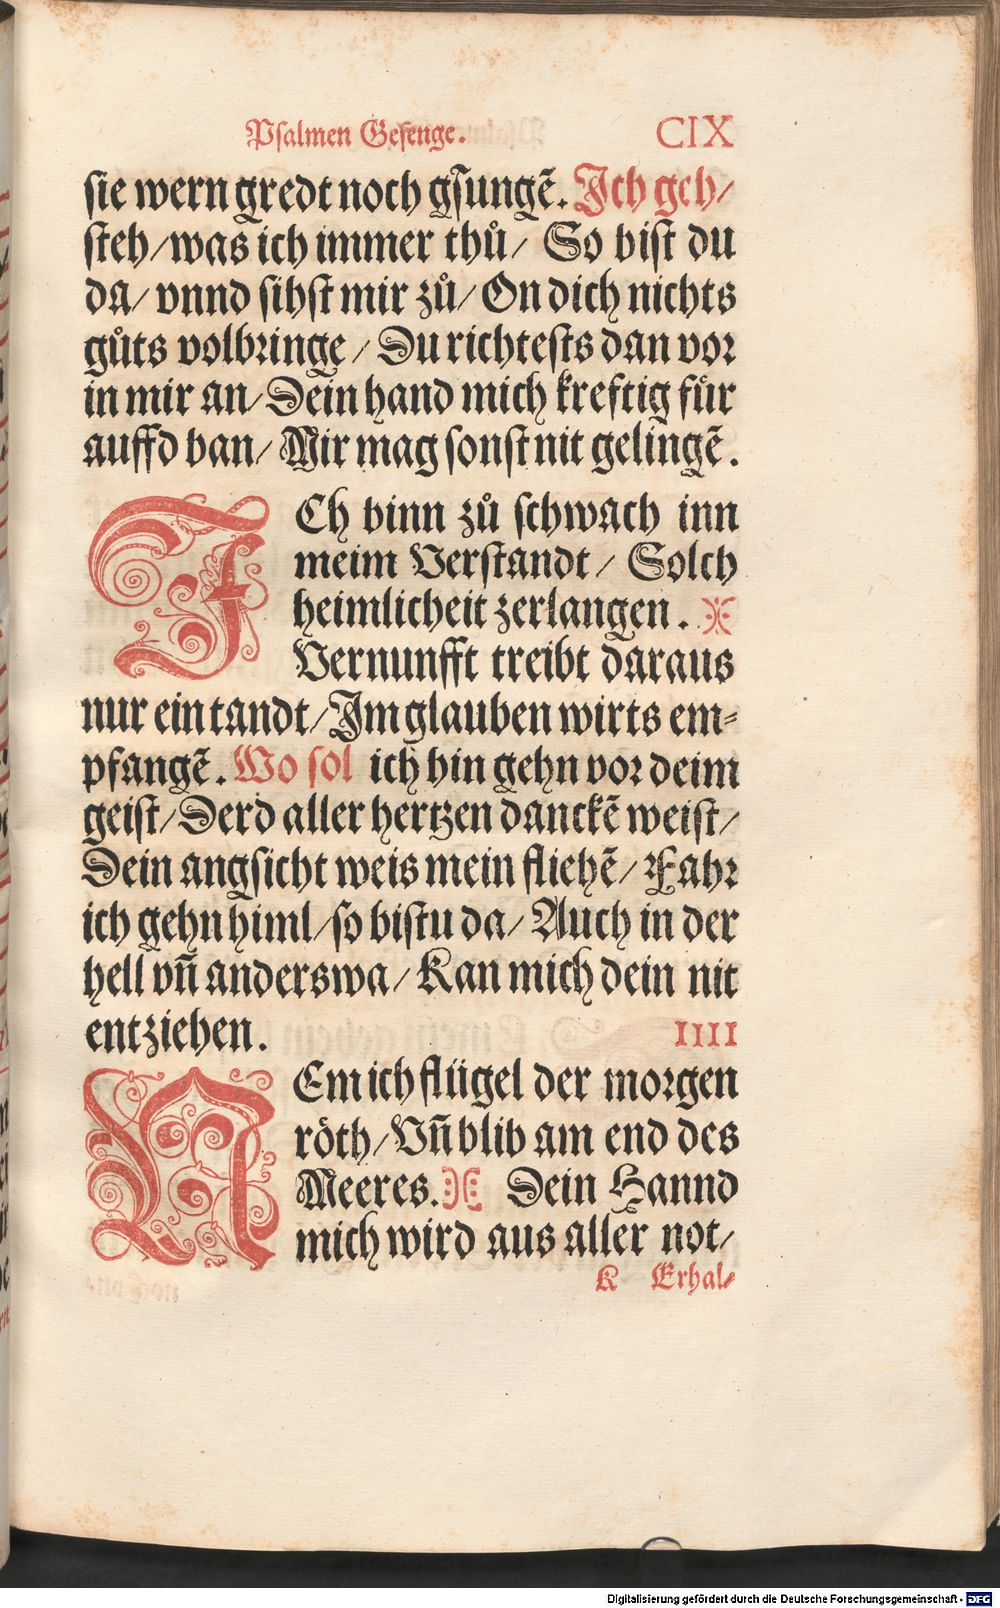 Psalmen Gesenge. CIX
sie wern gredt noch gsungē. Ich geh/
steh/ was ich immer thů/ So bist du
da/ vnnd sihst mir zů/ On dich nichts
gůts volbringe/ Du richtests dan vor
in mir an/ Dein hand mich kreftig fůr
auffd ban/ Mir mag sonst nit gelingē.
ICh binn zů schwach inn
meim Verstandt/ Solch
heimlicheit zerlangen.
Vernunfft treibt daraus
nur ein tandt/ Im glauben wirts em=
pfangē. Wo sol ich hin gehn vor deim
geist/ Derd aller hertzen danckē weist/
Dein angsicht weis mein fliehē/ Fahr
ich gehn himl/ so bistu da/ Auch in der
hell vn̄ anderswa/ Kan mich dein nit
entziehen. IIII
NEm ich flügel der morgen
röth/ Vn̄ blib am end des
Meeres. Dein Hannd
mich wird aus aller not/
K Erhal=
Digitalisierung gefördert durch die Deutsche Forschungsgemeinschaft - DFG